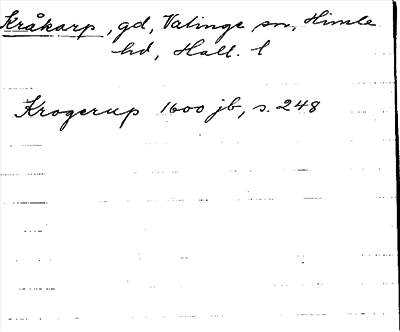 Kråkarp, gd, Valinge sn, Himle
hd, Hall. l
Krogerup 1600 jb, s. 248